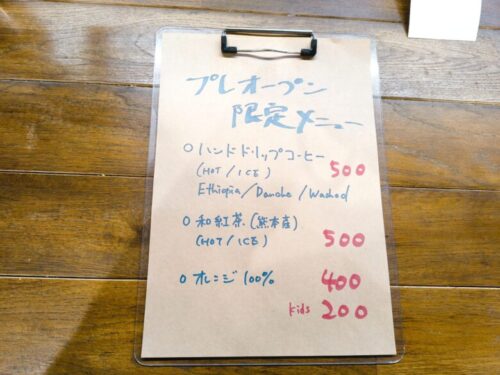 プレオープン
限定メニュー
○ ハンドドリップコーヒー
(HOT / ICE) 500
Ethiopia / Danche / Washed
○ 和紅茶 (熊本産)
(HOT / ICE) 500
○ オレンジ 100% 400
kids 200